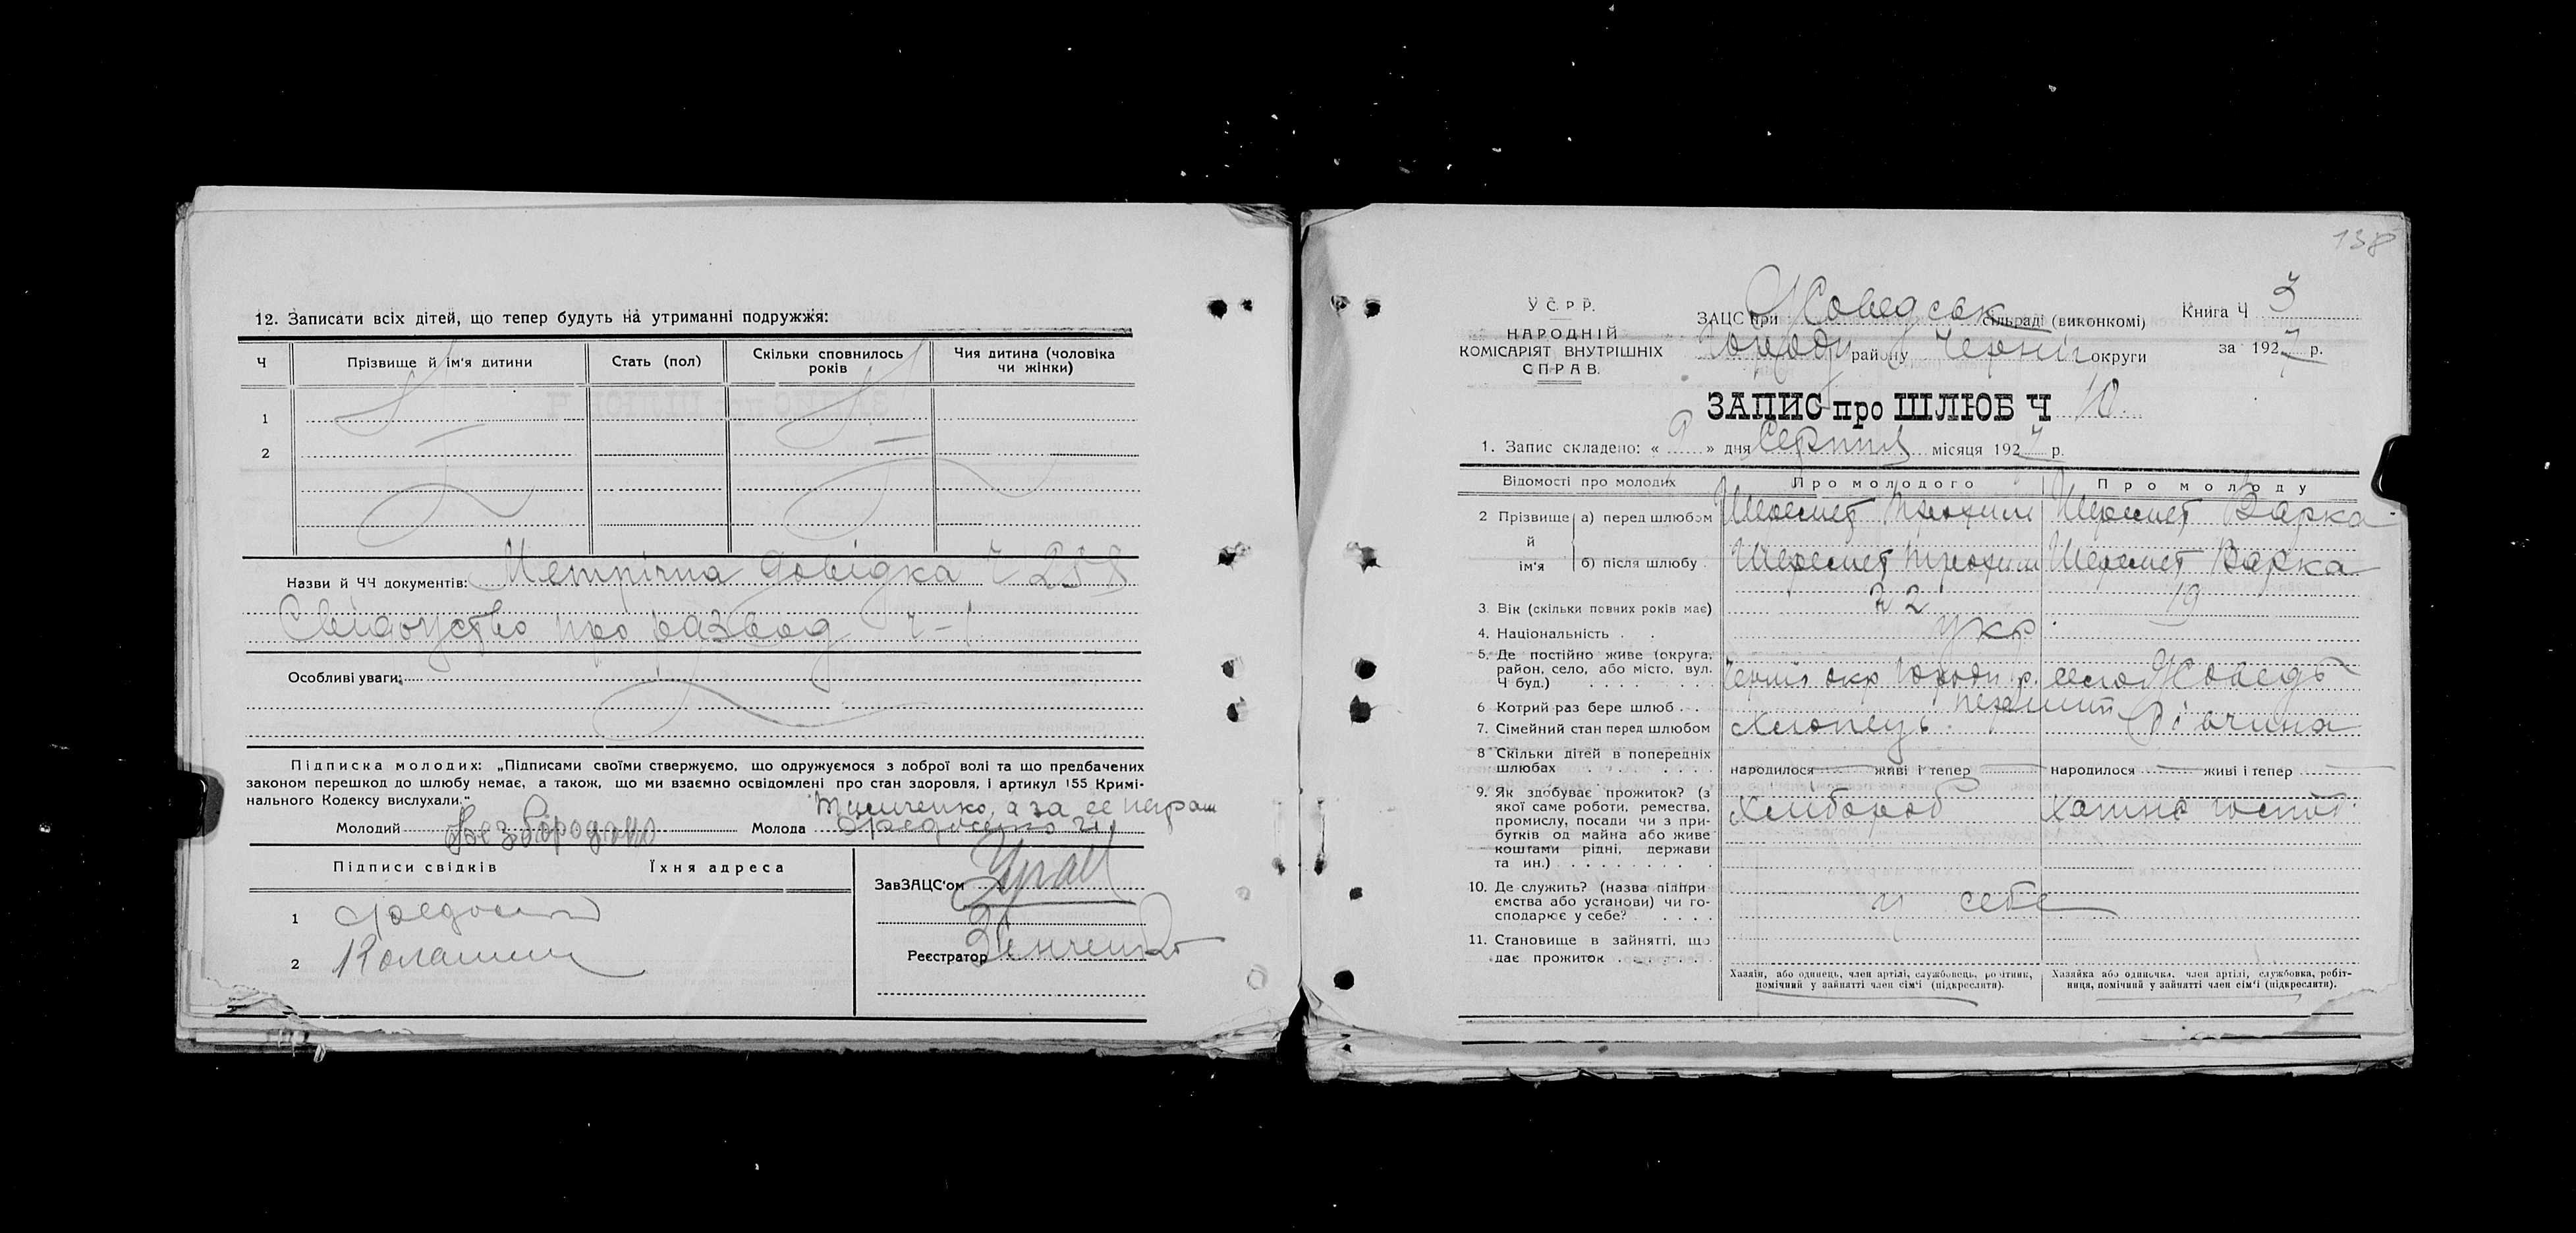 12. Записати всіх дітей, що тепер будуть на утриманні подружжя:
Ч
Прізвище й ім'я дитини
Стать (пол)
Скільки сповнилось років
Чия дитина (чоловіка чи жінки)
1
2
Назви й ЧЧ документів: Метрічна довідка Ч 258
Свідоуство про развод ч-1
Особливі уваги:
Підписка молодих: „Підписами своїми стверджуємо, що одружуємося з доброї волі та що предбачених
законом перешкод до шлюбу немає, а також, що ми взаємно освідомлені про стан здоровля, і артикул 155 Кримі-
нального Кодексу вислухали."
Тимченко, а за ее неграм
Молодий Безбородько Молода
Підписи свідків Їхня адреса
1
2
ЗавЗАЦС'ом
Реєстратор Зенченко
138
У С Р Р.
НАРОДНІЙ
КОМІСАРІЯТ ВНУТРІШНІХ
СПРАВ.
ЗАЦС при Жоведськ сільраді (виконкомі)
району Черніг округи
Книга Ч 3
за 1927 р.
ЗАПИС про ШЛЮБ Ч 10
1. Запис складено: « 9 » дня Серпня місяця 1927 р.
Відомості про молодих
Про молодого
Про молоду
2 Прізвище й ім'я
а) перед шлюбом Шеремет Трохим Шеремет Варка
б) після шлюбу Шеремет Трохим Шеремет Варка
3. Вік (скільки повних років має) 22 19
4. Національність укр.
5. Де постійно живе (округа,
район, село, або місто, вул.
Ч буд.) Черніг окр р. село Жоведь
6 Котрий раз бере шлюб перший
7. Сімейний стан перед шлюбом Хлопець Дівчина
8 Скільки дітей в попередніх
шлюбах народилося — живі і тепер — народилося — живі і тепер —
9. Як здобуває прожиток? (з
якої саме роботи, ремества,
промислу, посади чи з при-
бутків од майна або живе
коштами рідні, держави
та ин.) Хлібороб Хатнє госп.
10. Де служить? (назва підпри
ємства або установи) чи го-
сподарює у себе? у себе
11. Становище в зайнятті, що
дає прожиток
Хазяїн, або одинець, член артілі, службовець, робітник,
помічний у зайнятті член сім'ї (підкреслити).
Хазяйка або одиначка, член артілі, службовка, робіт-
ниця, помічний у зайнятті член сім'ї (підкреслити).